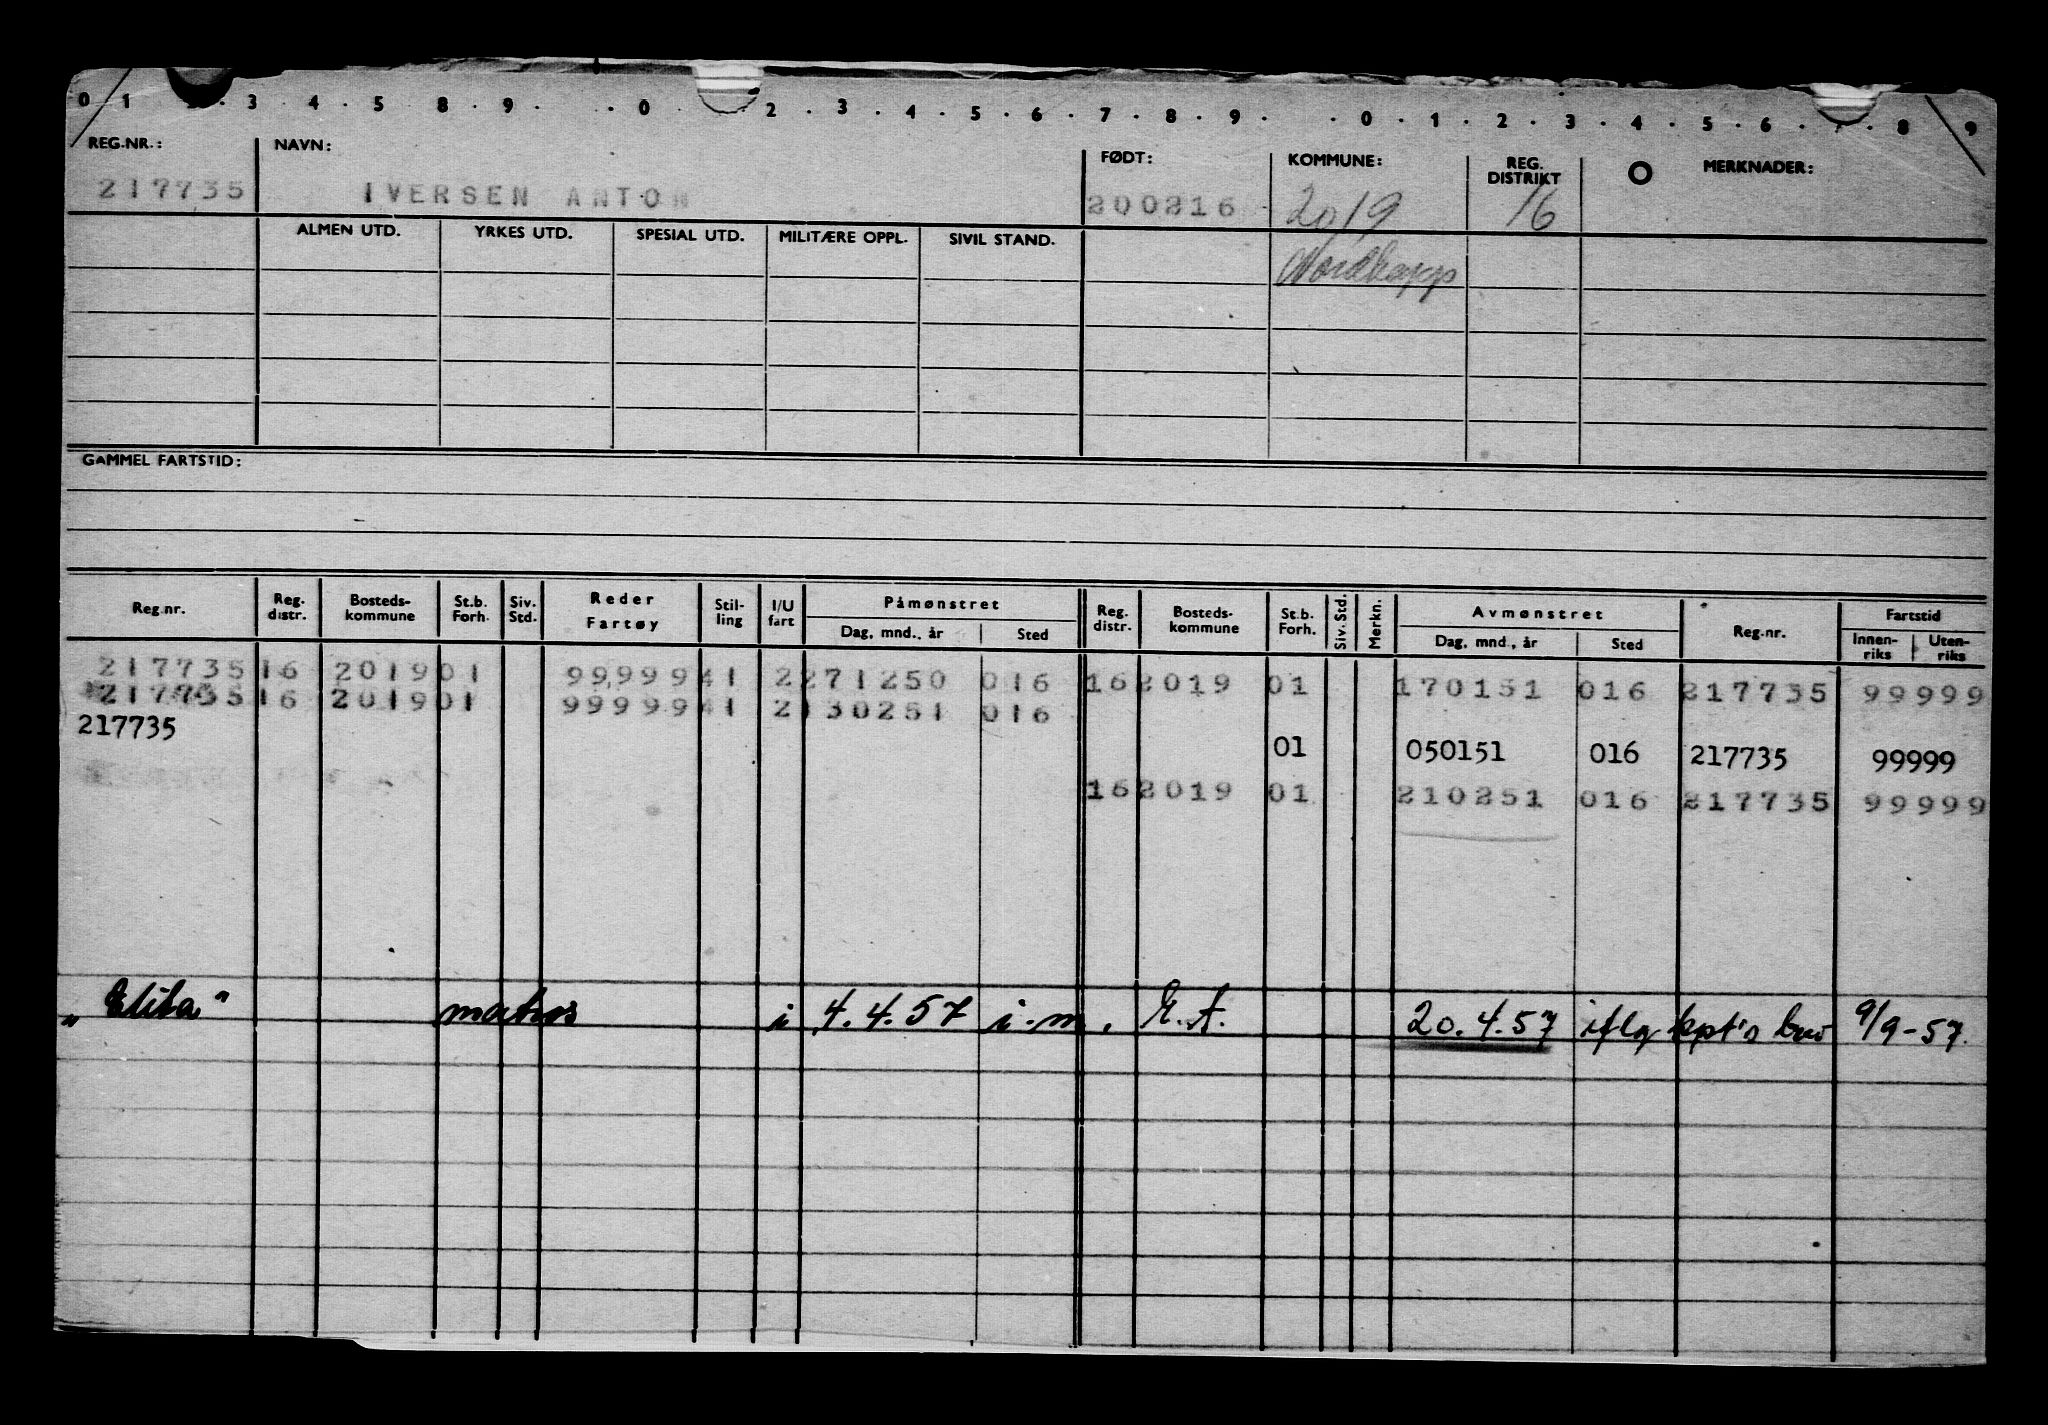 0 1 3 . 4 . 5 8 . 9 . . 0 . 2 . 3 . 4 . 5 . 6 . 7 . 8 . 9 . . 0 . 1 . 2 . 3 . 4 . 5 . 6 . 7 . 8 9
REG.NR.: NAVN: FØDT: KOMMUNE: REG. DISTRIKT MERKNADER:
217735 IVERSEN ANTON 200216 2019 16
ALMEN UTD. YRKES UTD. SPESIAL UTD. MILITÆRE OPPL. SIVIL STAND.
Nordkapp
GAMMEL FARTSTID:
Reg.nr. Reg. distr. Bosteds-kommune St.b. Forh. Siv. Std. Reder Fartøy Stil-ling I/U fart Påmønstret Reg. distr. Bosteds-kommune St.b. Forh. Siv. Std. Merkn. Avmønstret Reg.nr. Fartstid
Dag, mnd., år Sted Dag, mnd., år Sted Innen-riks Uten-riks
217735 16 2019 01 99999 41 2 271250 016 16 2019 01 170151 016 217735 99999
217735 16 2019 01 99999 41 2 130251 016
217735
01 050151 016 217735 99999
16 2019 01 210251 016 217735 99999
„Elita" matros i 4.4.57 i.m. 20.4.57 iflg kpt's brev 9/9-57.